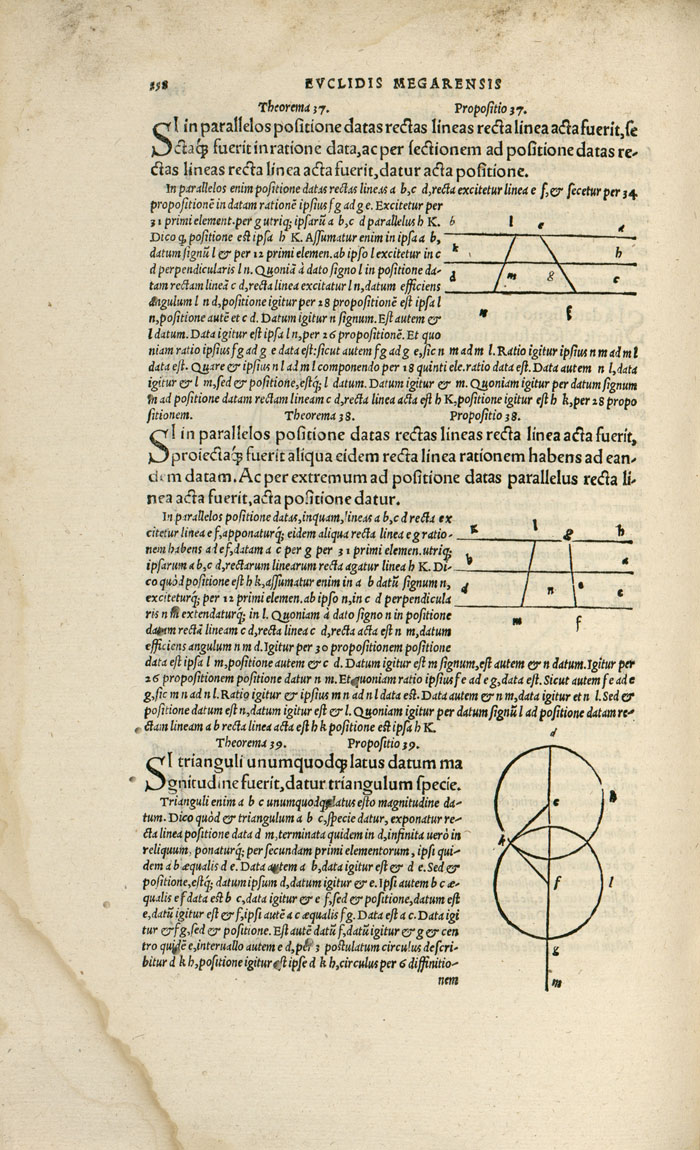 558 EVCLIDIS MEGARENSIS
Theorema 37. Propositio 37.
SI in parallelos positione datas rectas lineas recta linea acta fuerit, se
ctaq́; fuerit in ratione data, ac per sectionem ad positione datas re-
ctas lineas recta linea acta fuerit, datur acta positione.
In parallelos enim positione datas rectas lineas a b, c d, recta excitetur linea e f, & secetur per 34
propositionē in datam rationē ipsius f g ad g e. Excitetur per
31 primi element. per g utriq; ipsarū a b, c d parallelus h K.
Dico q, positione est ipsa h K. Assumatur enim in ipsa a b,
datum signū l & per 12 primi elemen. ab ipso l excitetur in c
d perpendicularis l n. Quoniā à dato signo l in positione da-
tam rectam lineā c d, recta linea excitatur l n, datum efficiens
angulum l n d, positione igitur per 28 propositionē est ipsa l
n, positione autē et c d. Datum igitur n signum. Est autem &
l datum. Data igitur est ipsa l n, per 26 propositionē. Et quo
niam ratio ipsius f g ad g e data est: sicut autem f g ad g e, sic n m ad m l. Ratio igitur ipsius n m ad m l
data est. Quare & ipsius n l ad m l componendo per 18 quinti ele. ratio data est. Data autem n l, data
igitur & l m, sed & positione, estq́; l datum. Datum igitur & m. Quoniam igitur per datum signum
m ad positione datam rectam lineam c d, recta linea acta est h K, positione igitur est h k, per 28 propo
sitionem. Theorema 38. Propositio 38.
SI in parallelos positione datas rectas lineas recta linea acta fuerit,
proiectaq́; fuerit aliqua eidem recta linea rationem habens ad ean-
dem datam. Ac per extremum ad positione datas parallelus recta li-
nea acta fuerit, acta positione datur.
In parallelos positione datas, inquam, lineas a b, c d recta ex
citetur linea e f, apponaturq́; eidem aliqua recta linea e g ratio-
nem habens ad e f, datam a c per g per 31 primi elemen. utriq;
ipsarum a b, c d, rectarum linearum recta agatur linea h K. Di-
co quòd positione est h k, assumatur enim in a b datū signum n,
exciteturq́; per 12 primi elemen. ab ipso n, in c d perpendicula
ris n m extendaturq́; in l. Quoniam à dato signo n in positione
datam rectā lineam c d, recta linea c d, recta acta est n m, datum
efficiens angulum n m d. Igitur per 30 propositionem positione
data est ipsa l m, positione autem & c d. Datum igitur est m signum, est autem & n datum. Igitur per
26 propositionem positione datur n m. Et quoniam ratio ipsius f e ad e g, data est. Sicut autem f e ad e
g, sic m n ad n l. Ratio igitur & ipsius m n ad n l data est. Data autem & n m, data igitur et n l. Sed &
positione datum est n, datum igitur est & l. Quoniam igitur per datum signū l ad positione datam re-
ctam lineam a b recta linea acta est h k positione est ipsa h K.
Theorema 39. Propositio 39.
SI trianguli unumquodq; latus datum ma
gnitudine fuerit, datur triangulum specie.
Trianguli enim a b c unumquodq; latus esto magnitudine da-
tum. Dico quòd & triangulum a b c, specie datur, exponatur re-
cta linea positione data d m, terminata quidem in d, infinita uerò in
reliquum, ponaturq́; per secundam primi elementorum, ipsi qui-
dem a b æqualis d e. Data autem a b, data igitur est & d e. Sed &
positione, estq́; datum ipsum d, datum igitur & e. Ipsi autem b c æ-
qualis e f data est b c, data igitur & e f, sed & positione, datum est
e, datū igitur est & f, ipsi autē a c æqualis f g. Data est a c. Data igi
tur & f g, sed & positione. Est autē datū f, datū igitur & g & cen
tro quidē e, interuallo autem e d, per 3 postulatum circulus descri-
bitur d k h, positione igitur est ipse d k h, circulus per 6 diffinitio-
nem
b l e a
k h
d m g c
n f
K l g h
b a
d n e c
m f
d
e h
k
f l
g
m